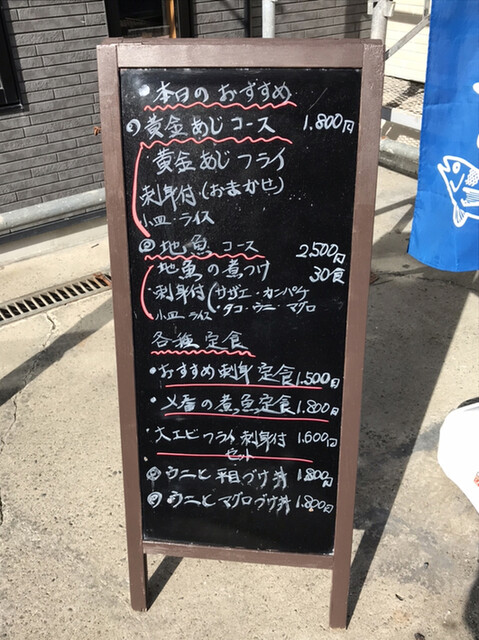 ・本日のおすすめ
◎黄金あじコース 1.800円
・黄金あじフライ
刺身付(おまかせ)
小皿・ライス
◎地魚コース 2.500円
・地魚の煮つけ 30食
・刺身付(サザエ・カンパチ
・タコ・ウニ・マグロ
小皿 ライス
各種定食
・おすすめ刺身定食 1.500円
・〆番の煮魚定食 1.800円
・大エビフライ刺身付 1.600円
セット
◎ウニと平目づけ丼 1.800円
◎ウニとマグロづけ丼 1.800円